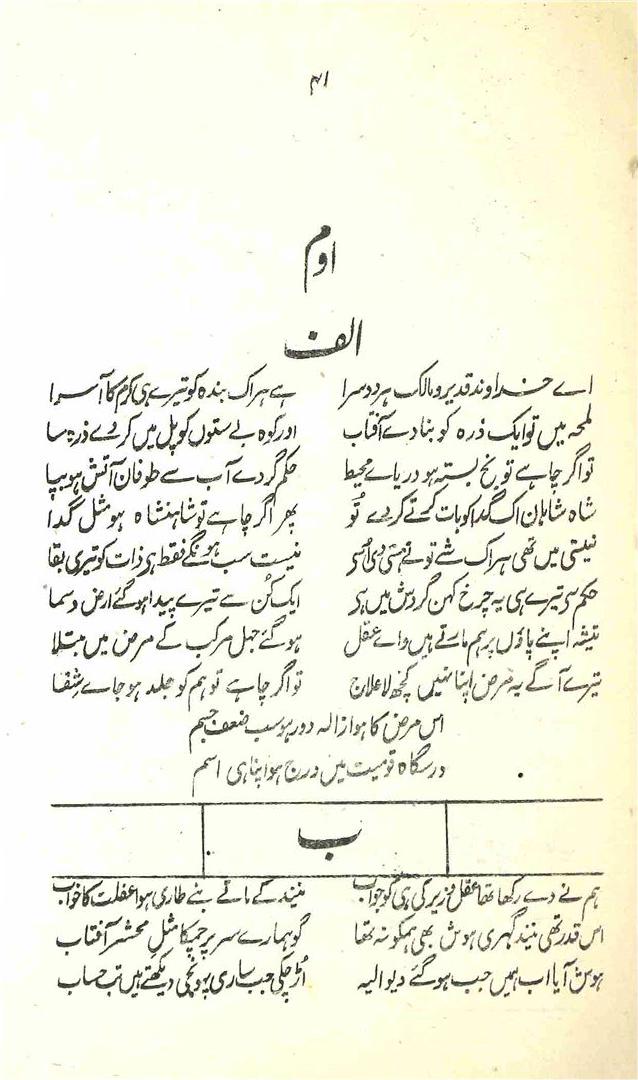 ۴۱
اوم
الف
اے خداوند قدیر و مالک ہر دوسرا ہے ہر اک بندہ کو تیرے ہی کرم کا آسرا
لمحہ میں تو ایک ذرہ کو بنا دے آفتاب اور کوہ بے ستوں کو پل میں کر دے ذرہ سا
تو اگر چاہے تو یخ بستہ ہو دریاے محیط حکم گر دے آب سے طوفان آتش ہو بپا
شاہ شاہان اک گدا کو بات کرتے کردے تُو پھر اگر چاہے تو شاہنشاہ ہو مثل گدا
نیستی میں تھی ہر اک شے تو نے ہستی دی اُسی نیست سب ہونگے فقط ہی ذات کو تیری بقا
حکم سی تیرے ہی یہ چرخ کہن گردش میں ہی ایک کُن سے تیرے پیدا ہو گئے ارض و سما
تیشہ اپنے پاؤں پر ہم مارتے ہیں واے عقل ہو گئے جہل مرکب کے مرض میں مبتلا
تیرے آگے یہ مرض اپنا نہیں کچھ لاعلاج تو اگر چاہے تو ہم کو جلد ہو جاے شِفا
اس مرض کا ہو ازالہ دور ہو سب ضعف جسم
درسگاہ قومیت میں درج ہو اپنا ہی اسم
ب
ہم نے دے رکھا تھا عقل وزیرکی ہی کو جواب نیند کے ماتے بنے طاری ہوا غفلت کا خواب
اس قدر تھی نیند گہری ہوش بھی ہمکو نہ تھا گو ہمارے سر پر چمکا مثلِ محشر آفتاب
ہوش آیا اب ہمیں جب ہو گئے دیوالیہ اُڑ چکی جب ساری پونچی دیکھتے ہیں تب حساب